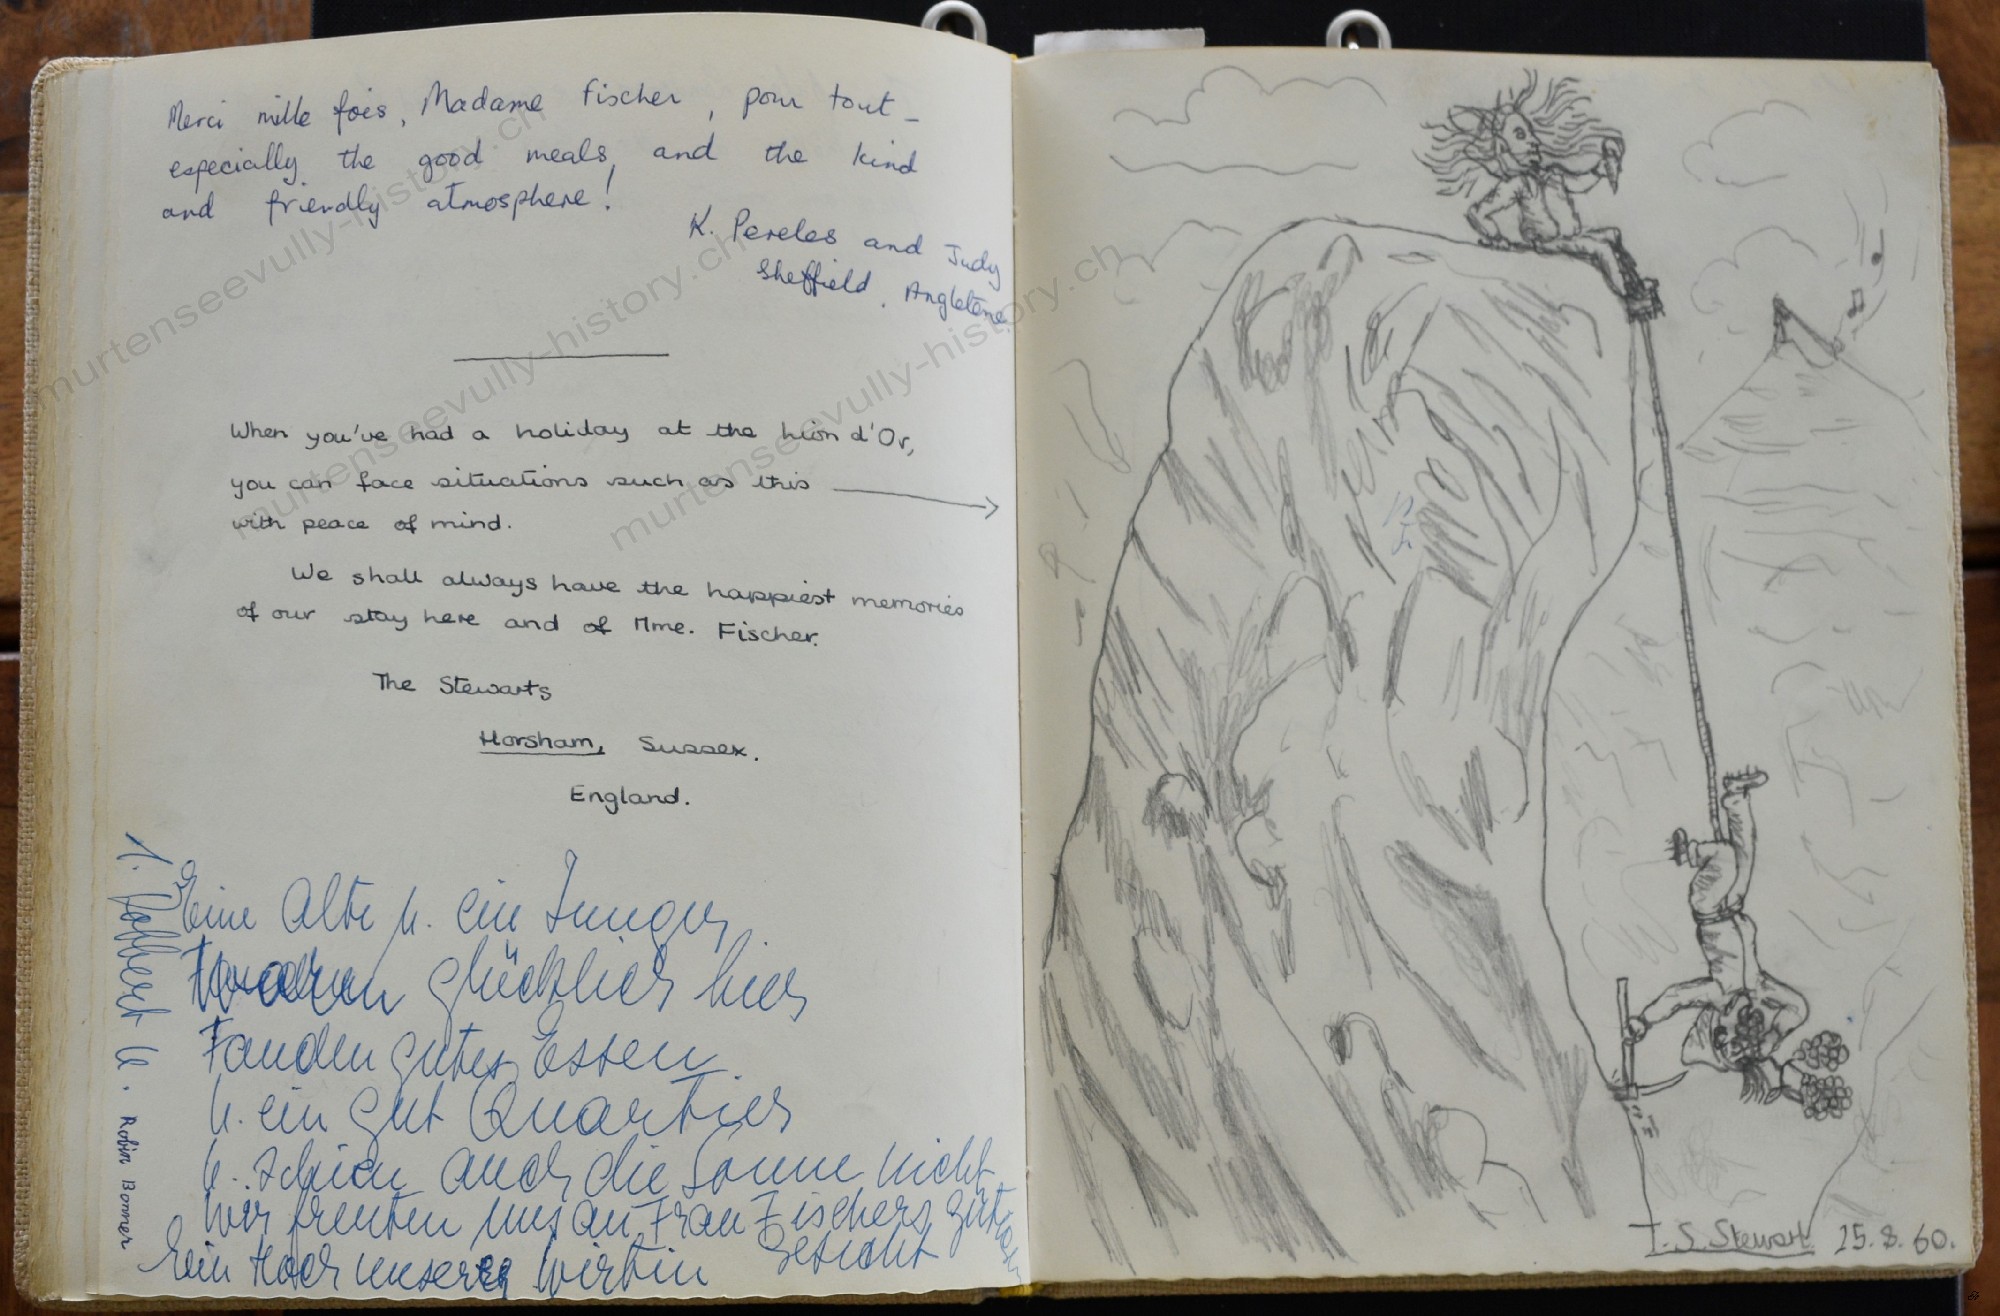 Merci mille fois, Madame Fischer, pour tout –
especially the good meals, and the kind
and friendly atmosphere!
K. Pereles and Judy
Sheffield. Angleterre.
When you've had a holiday at the Lion d'Or,
you can face situations such as this
with peace of mind.
We shall always have the happiest memories
of our stay here and of Mme. Fischer.
The Stewarts
Horsham, Sussex.
England.
Eine Alte u. ein Junger
waren glücklich hier
Fanden gutes Essen
u. ein gut Quartier
u. schien auch die Sonne nicht
wir freuten uns an Frau Fischers
Gesicht
Ein Hoch unserer Wirtin
Robin Bonner
I. S. Stewart 25.8.60.
murtenseevully-history.ch
murtenseevully-history.ch
murtenseevully-history.ch